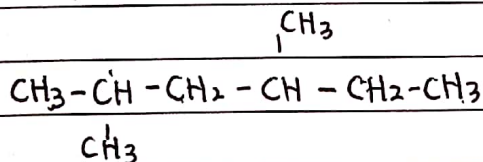 CH3
CH3-CH-CH2-CH-CH2-CH3
CH3